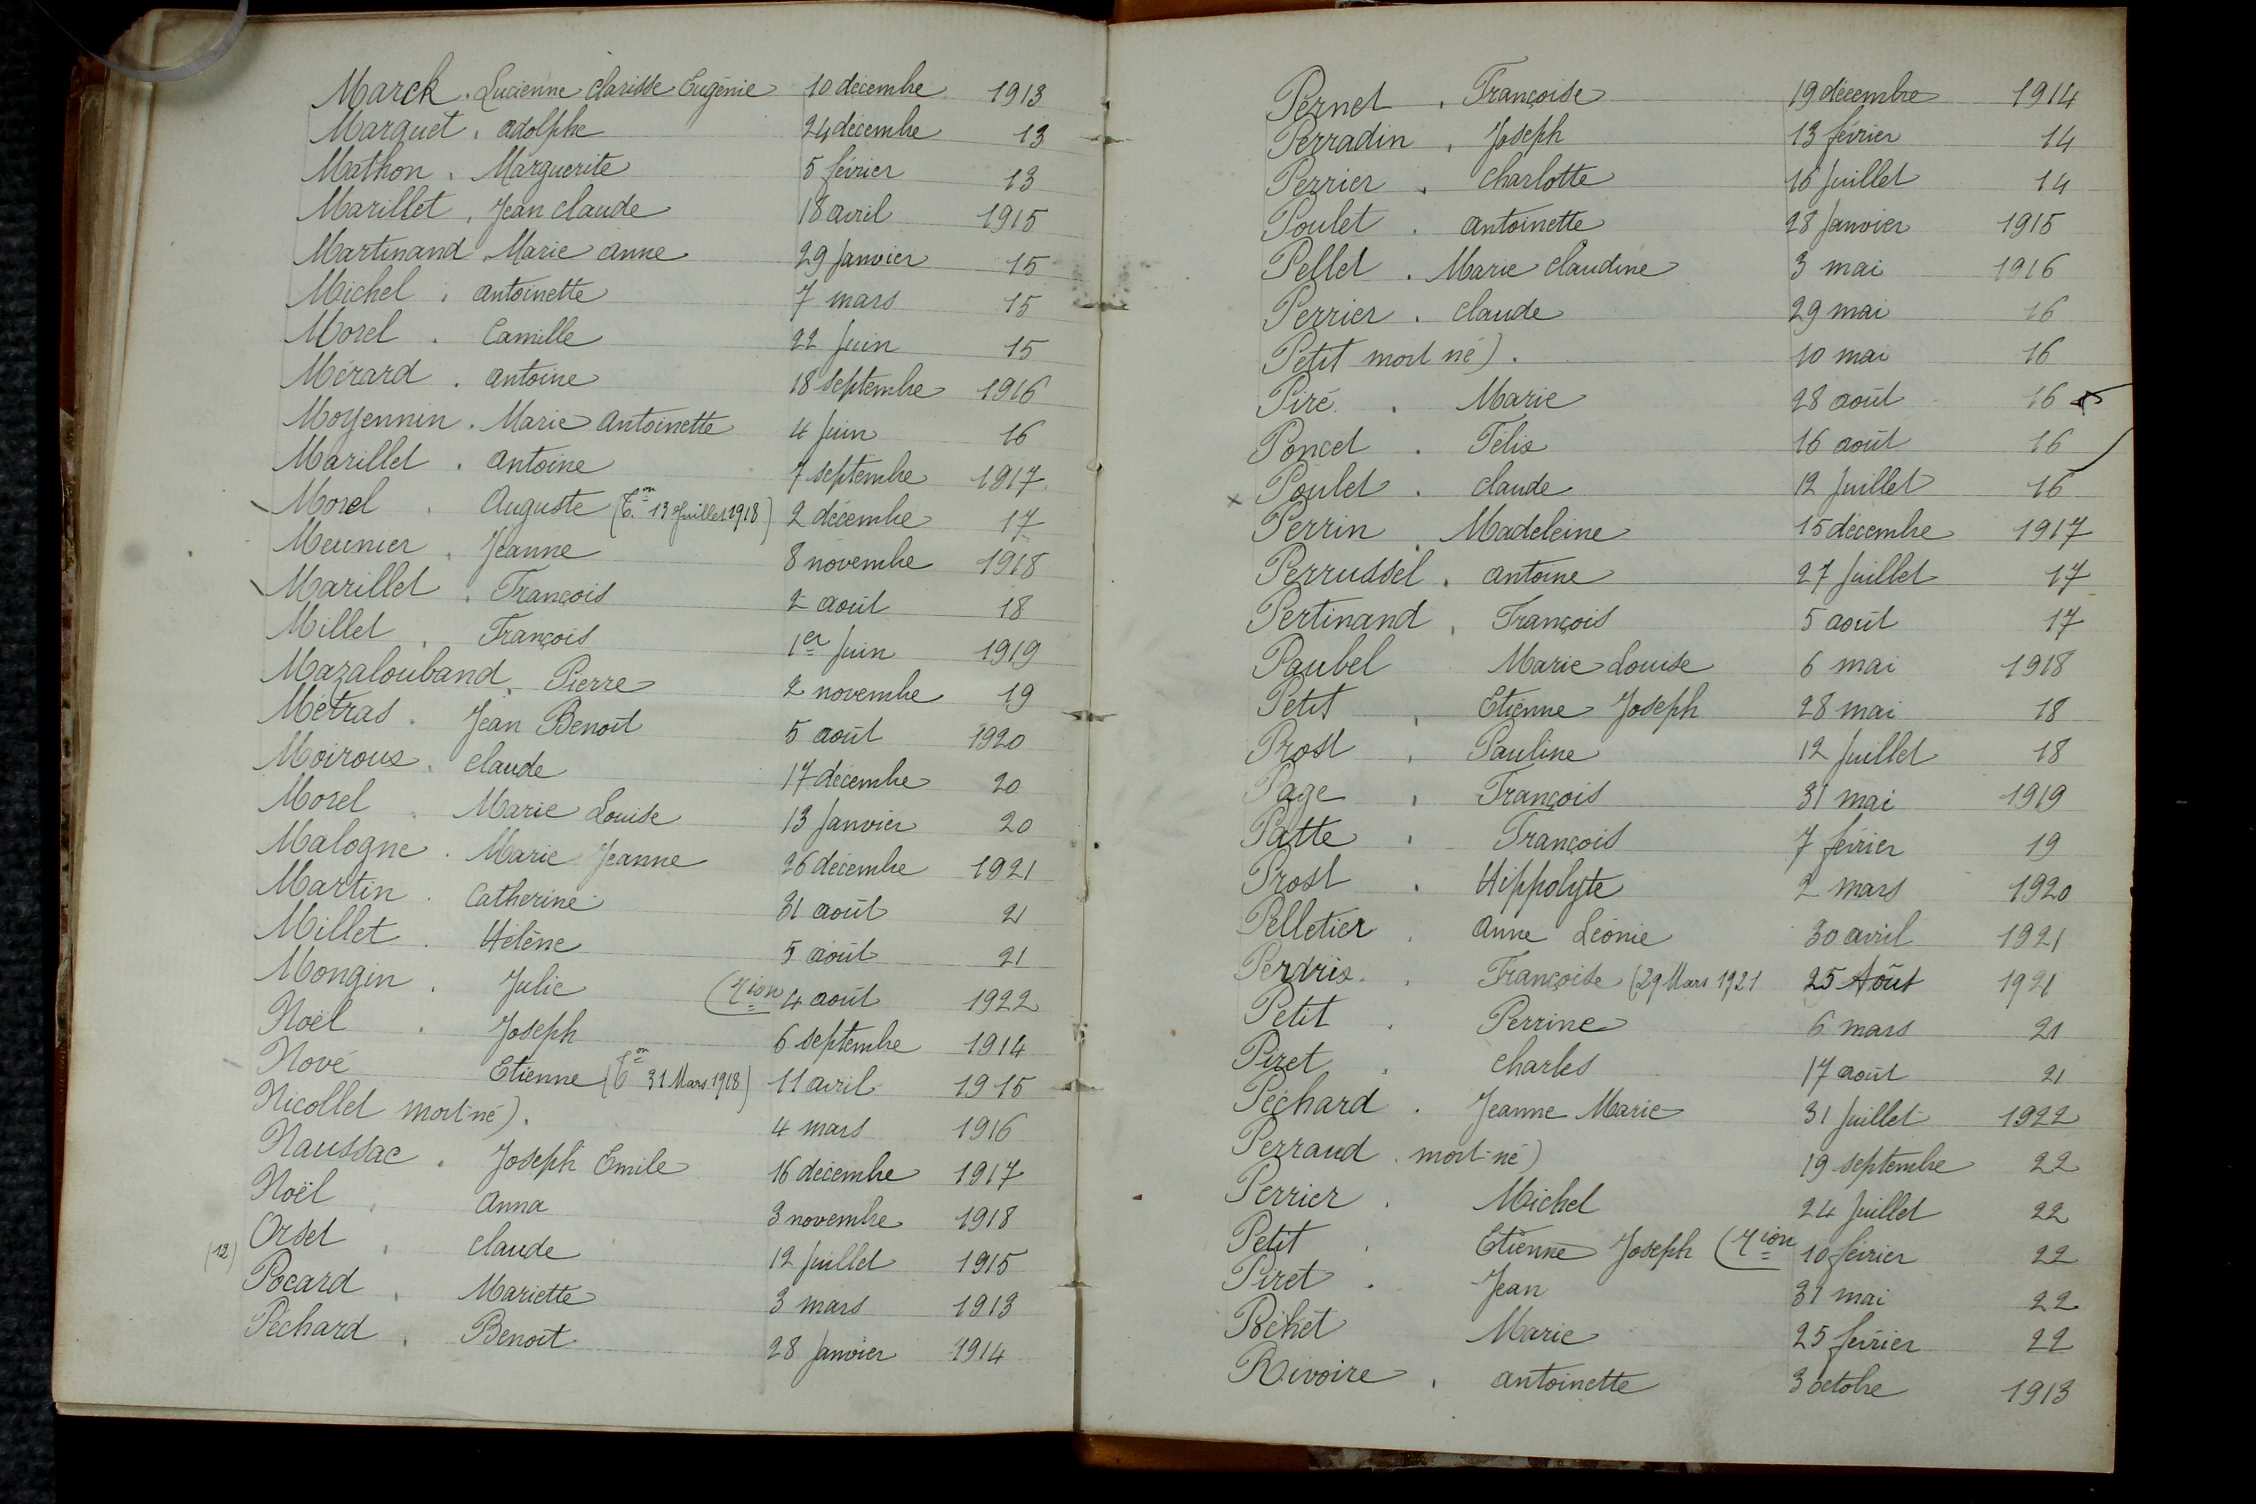 Marck . Lucienne Clarisse Eugénie 10 décembre 1913
Marquet . Adolphe 24 décembre 13
Mathon . Marguerite 5 février 13
Marillet . Jean Claude 18 avril 1915
Martinand . Marie Anne 29 Janvier 15
Michel . Antoinette 7 mars 15
Morel . Camille 22 Juin 15
Mérard . Antoine 18 septembre 1916
Moyennin . Marie Antoinette 4 Juin 16
Marillet . Antoine 7 septembre 1917
Morel . Auguste (Ton 13 Juillet 1918) 2 décembre 17
Meunier . Jeanne 8 novembre 1918
Marillet . François 2 août 18
Millet . François 1er Juin 1919
Mazalouband . Pierre 2 novembre 19
Métras . Jean Benoît 5 août 1920
Moiroux . Claude 17 décembre 20
Morel . Marie Louise 13 Janvier 20
Malogne . Marie Jeanne 26 décembre 1921
Martin . Catherine 31 août 21
Millet . Hélène 5 août 21
Mongin . Julie (Tion 4 août 1922
Noël . Joseph 6 septembre 1914
Nové Etienne (Ton 31 Mars 1918) 11 avril 1915
Nicollet mort-né) . 4 mars 1916
Naussac . Joseph Emile 16 décembre 1917
Noël . Anna 3 novembre 1918
Orset . Claude 12 Juillet 1915
(12) Pocard . Mariette 3 mars 1913
Péchard . Benoît 28 Janvier 1914
Pernet . Françoise 19 décembre 1914
Perradin . Joseph 13 février 14
Perrier . Charlotte 16 Juillet 14
Poulet . Antoinette 28 Janvier 1915
Pellet . Marie Claudine 3 mai 1916
Perrier . Claude 29 mai 16
Petit mort né) . 10 mai 16
Piré . Marie 28 août 16
Poncet . Félix 16 août 16
x Poulet . Claude 12 Juillet 16
Perrin . Madeleine 15 décembre 1917
Perrussel . Antoine 27 Juillet 17
Pertinand . François 5 août 17
Paubel Marie Louise 6 mai 1918
Petit . Etienne Joseph 28 mai 18
Prost . Pauline 12 Juillet 18
Page . François 31 mai 1919
Patte . François 7 février 19
Prost . Hippolyte 2 mars 1920
Pelletier . Anne Léonie 30 avril 1921
Perdrix . Françoise (29 Mars 1921 25 Août 1921
Petit . Perrine 6 mars 21
Piret . Charles 17 août 21
Péchard . Jeanne Marie 31 Juillet 1922
Perraud . mort-né) 19 septembre 22
Perrier . Michel 24 Juillet 22
Petit . Etienne Joseph (Tion 10 février 22
Piret . Jean 31 mai 22
Marie 25 février 22
Rivoire . Antoinette 3 octobre 1913